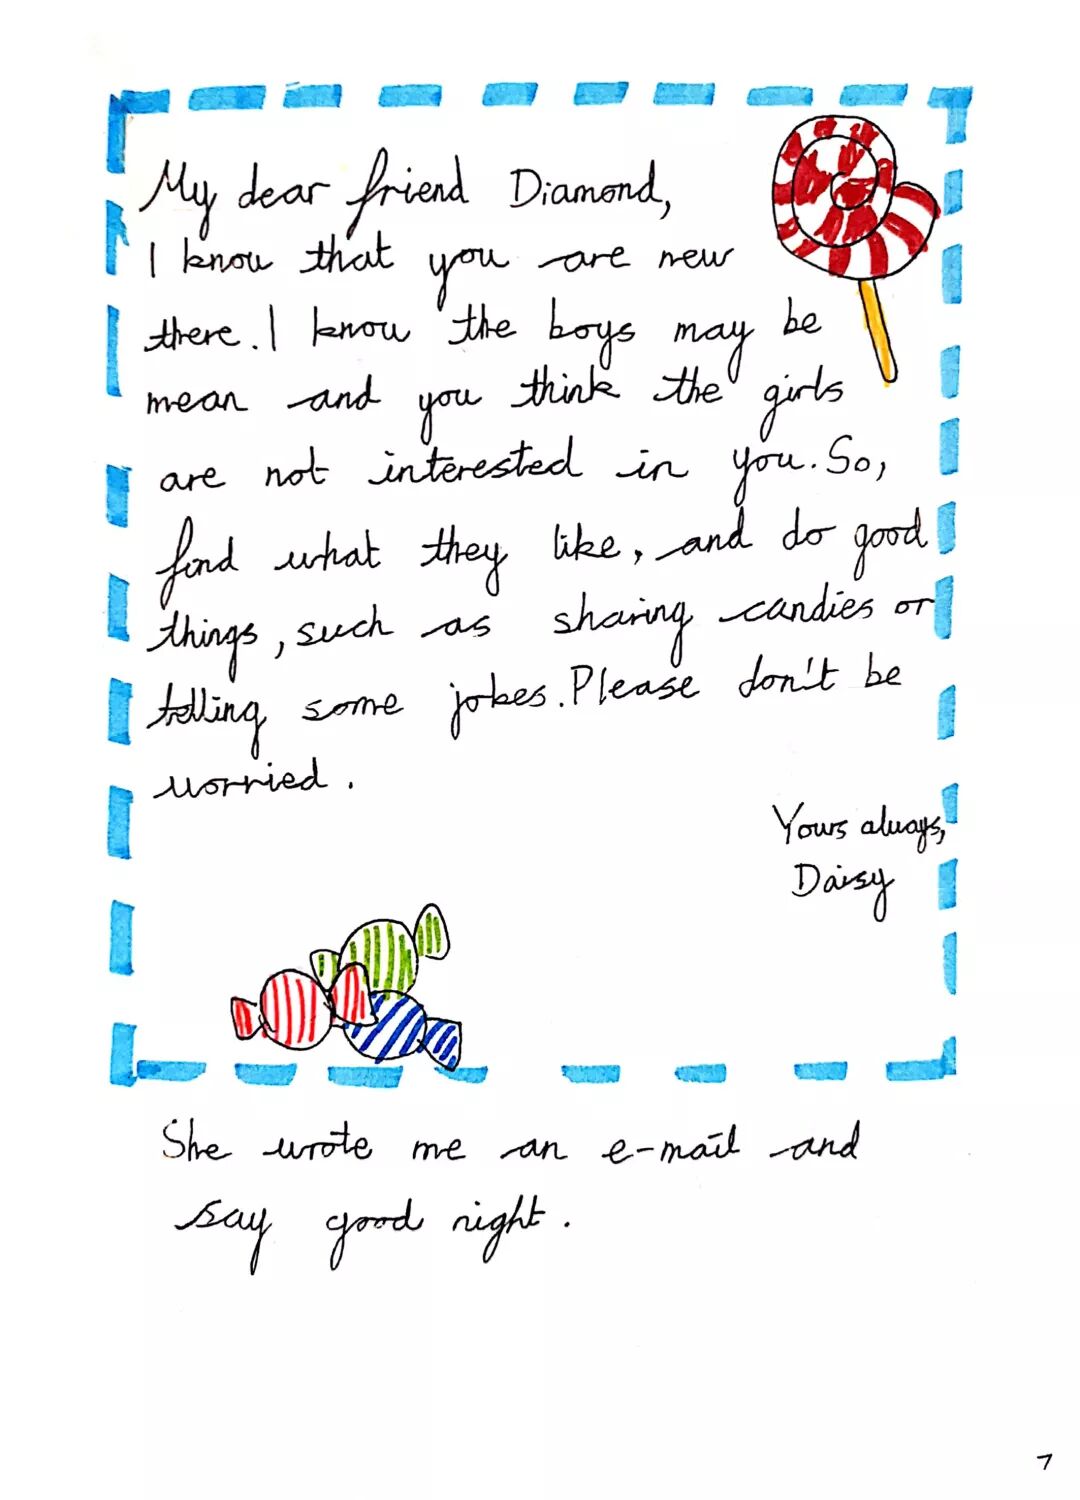 My dear friend Diamond,
I know that you are new
there. I know the boys may be
mean and you think the girls
are not interested in you. So,
find what they like, and do good
things, such as sharing candies or
telling some jokes. Please don't be
worried.
Yours always,
Daisy
She wrote me an e-mail and
say good night.
7